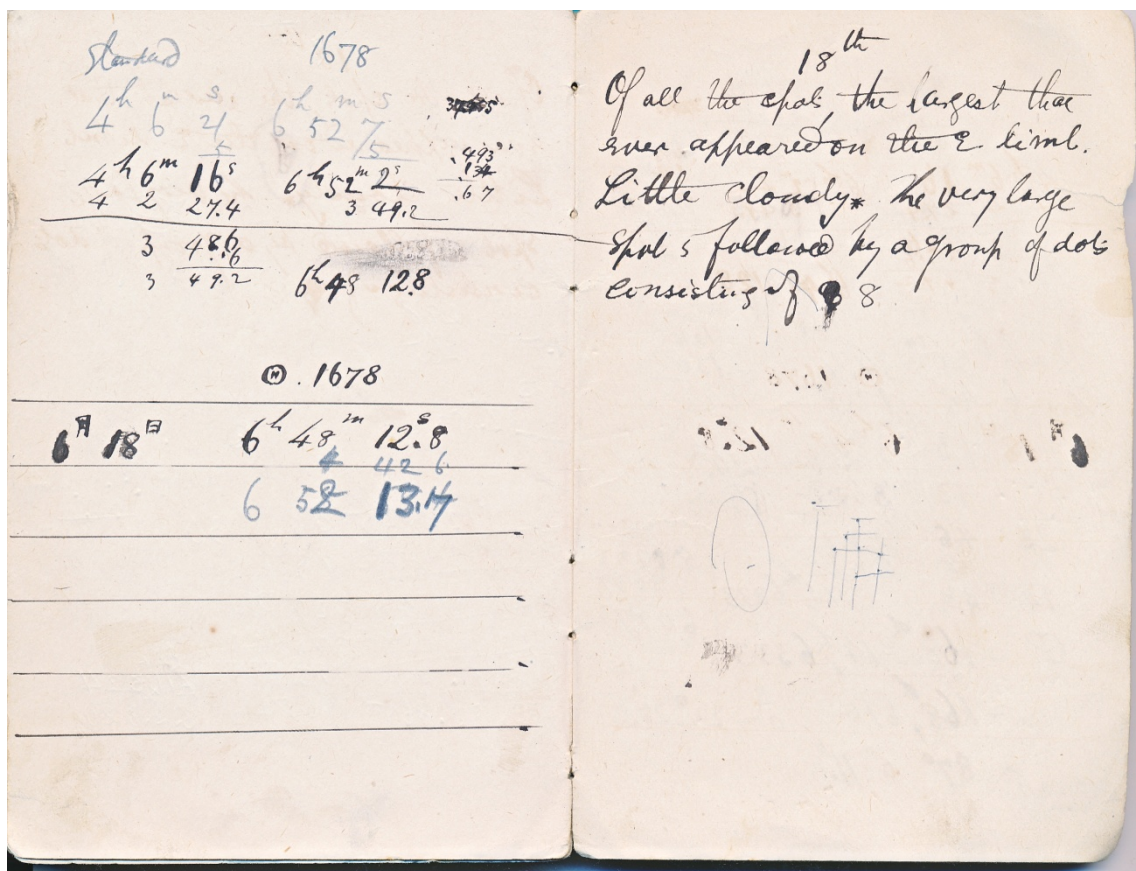 Standard 1678
4h 6m 21s 6h 52m 7s
5 5
4h 6m 16s 6h 52m 2s
4 2 27.4 3 49.2
.493
.134
.67
3 48.6
.6
3 49.2 6h 48 12.8
⊙. 1678
6月 18日 6h 48m 12.8s
4 42 6
6 52 13.4
18th
Of all the spots, the largest that
ever appeared on the E limb.
Little cloudy. The very large
spot is followed by a group of dots
consisting of 8